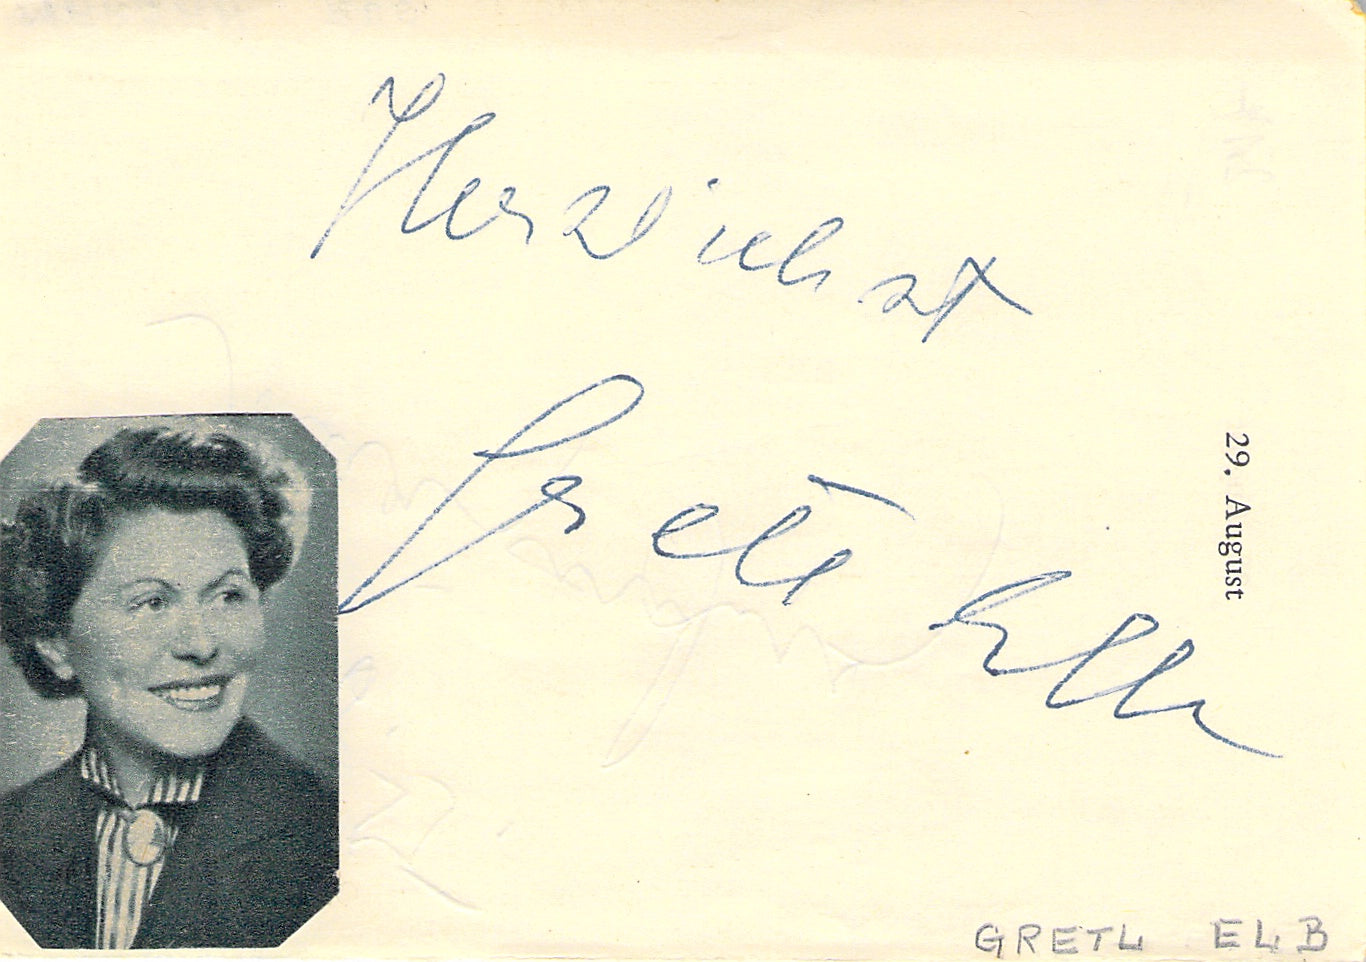 Herzlichst
Gretl Elb
29. August
GRETL ELB